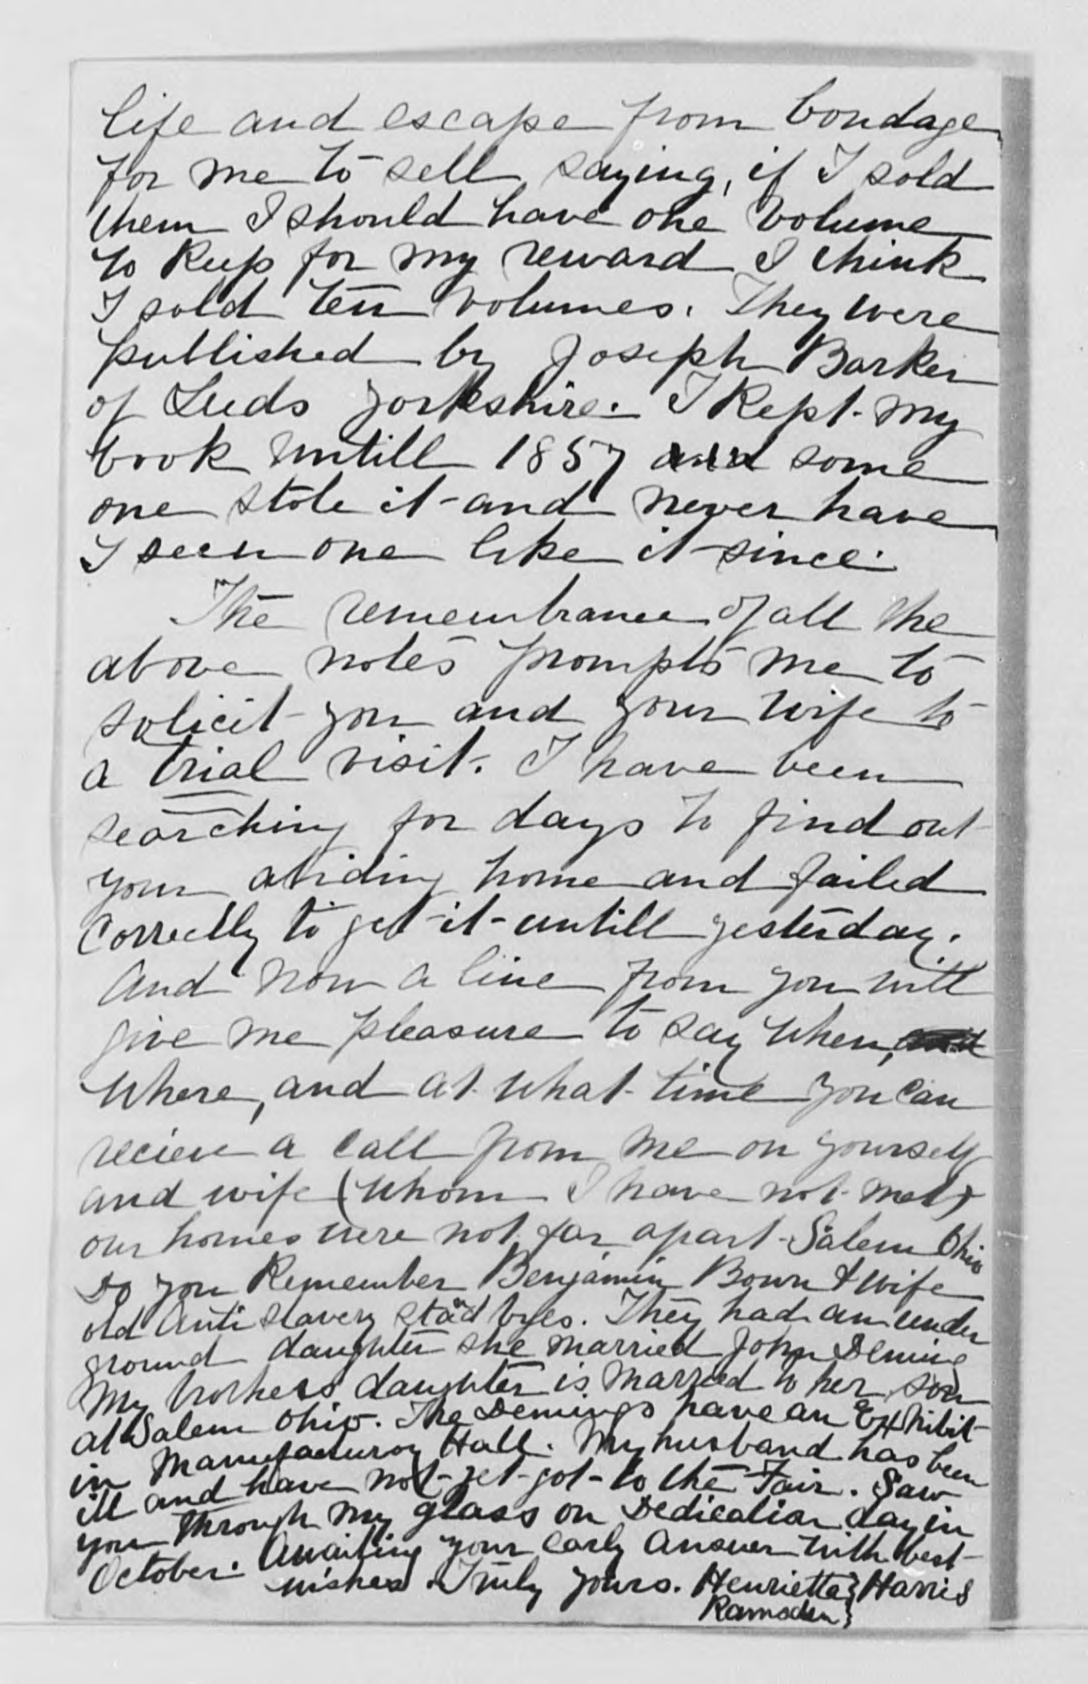 life and escape from bondage
for me to sell saying, if I sold
them I should have one volume
to Keep for my reward I think
I sold ten volumes. They were
published by Joseph Barker
of Leeds Yorkshire. I Kept my
book untill 1857 and some
one stole it and never have
I seen one like it since.
The remembrance of all the
above notes prompts me to
solicit you and your wife to
a trial visit. I have been
searching for days to find out
your abiding home and failed
correctly to get it untill yesterday.
And now a line from you will
give me pleasure to say when,
where, and at what time you can
recieve a call from me on yourself
and wife (whom I have not met)
our homes were not far apart Salem Ohio
Do you Remember Benjamin Bown & wife
old Anti slavery stand byes. They had an under
ground daughter she married John Deming
My brothers daughter is married to her son
at Salem Ohio. The Demings have an Exhibit
in Manufacturoy Hall. My husband has been
ill and have not yet got to the Fair. Saw
you through my glass on Dedication day in
October. Awaiting your early answer with best
wishes Truly yours. Henrietta} Harris
Ramsden}